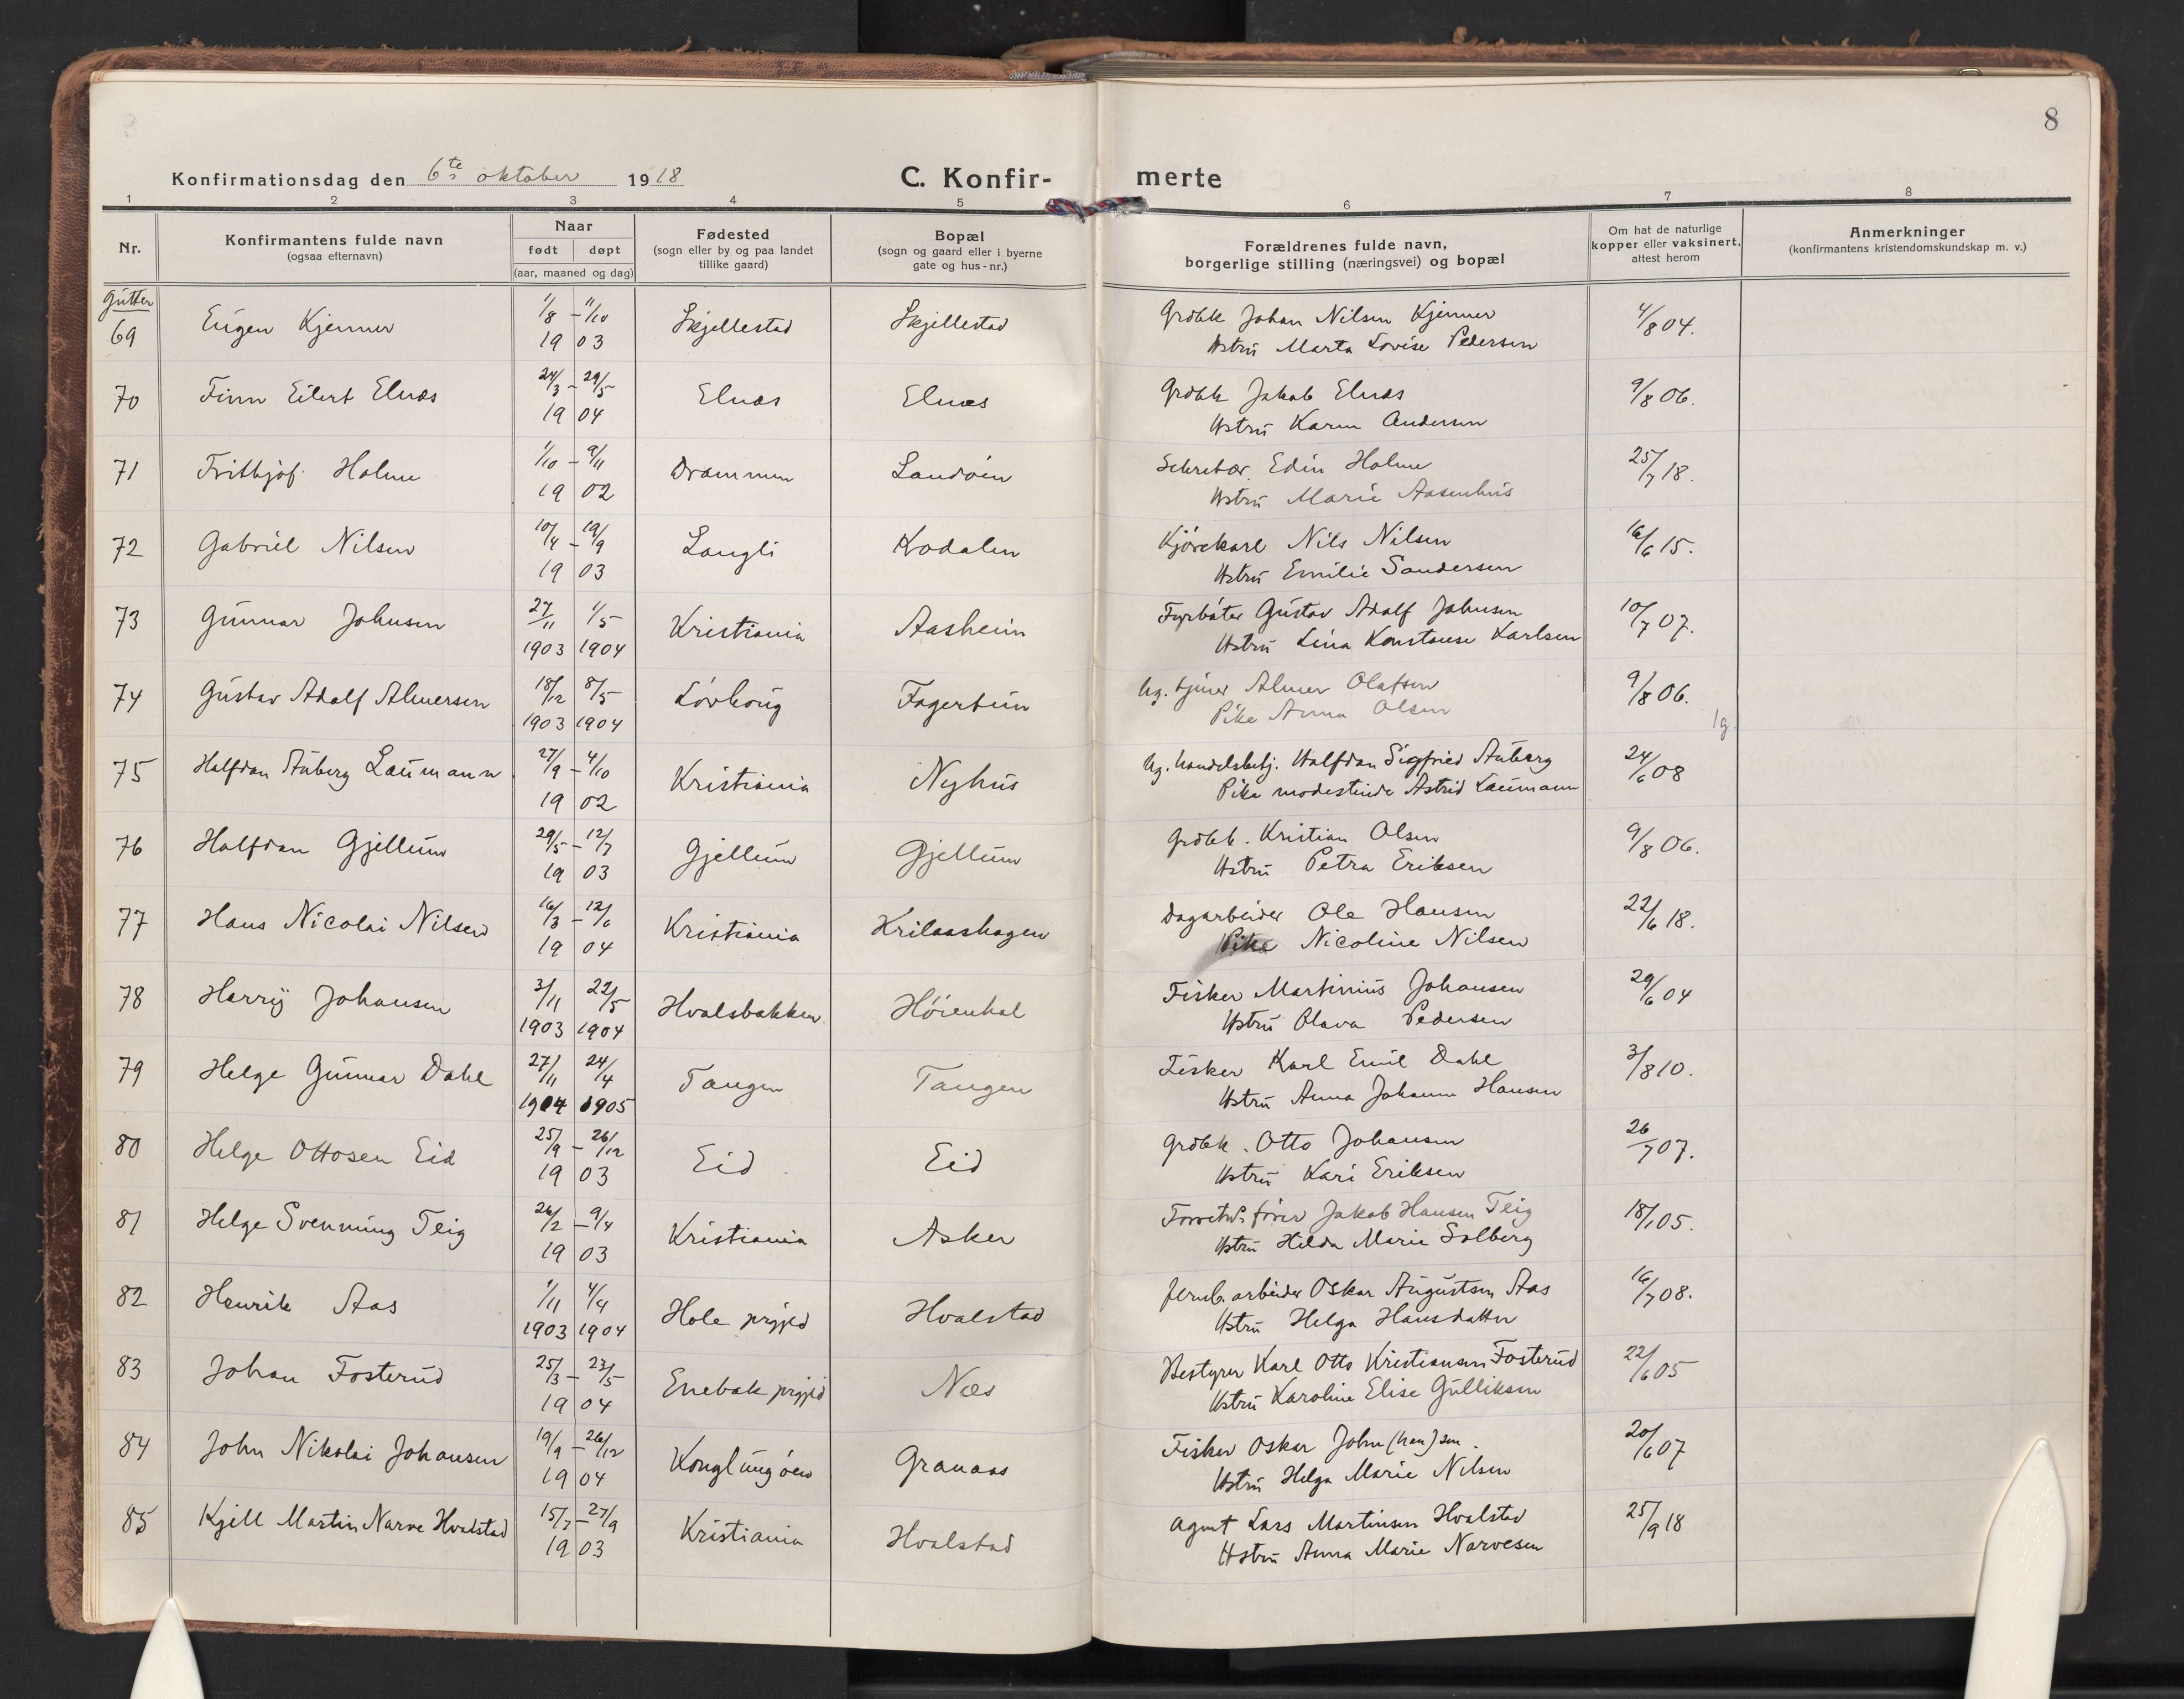 8
Konfirmationsdag den 6te oktober 1918
C. Konfir- merte
1 2 3 4 5 6 7 8
Nr.
Konfirmantens fulde navn
(ogsaa efternavn)
Naar
født døpt
(aar, maaned og dag)
Fødested
(sogn eller by og paa landet
tillike gaard)
Bopæl
(sogn og gaard eller i byerne
gate og hus-nr.)
Forældrenes fulde navn,
borgerlige stilling (næringsvei) og bopæl
Om hat de naturlige
kopper eller vaksinert,
attest herom
Anmerkninger
(konfirmantens kristendomskundskap m. v.)
Gutter
69 Eugen Kjenner 1/8 – 11/10 1903 Skjellestad Skjellestad Grdbk Johan Nilsen Kjenner 4/8 04.
Hstru Marta Lovise Pedersen
70 Finn Eilert Elnæs 24/3 – 29/5 1904 Elnæs Elnæs Grdbk Jakob Elnæs 9/8 06.
Hstru Karen Andersen
71 Frithjof Holme 1/10 – 9/11 1902 Drammen Landøen Sekretær Edin Holme 25/7 18.
Hstru Marie Aasenhus
72 Gabriel Nilsen 10/4 – 19/9 1903 Langli Kodalen Kjørekarl Nils Nilsen 16/6 15.
Hstru Emilie Sandersen
73 Gunnar Johnsen 27/11 1903 1/5 1904 Kristiania Aasheim Fyrbøter Gustav Adolf Johnsen 10/7 07.
Hstru Lina Konstanse Karlsen
74 Gustav Adolf Almersen 18/12 1903 8/5 1904 Løvhoug Fagertun Ug. tjener Almer Olafsen 9/8 06.
Pike Anna Olsen
1g.
75 Halfdan Auberg Laumann 27/9 – 4/10 1902 Kristiania Nyhus Ug. handelsbetj. Halfdan Sigfried Auberg 24/6 08
Pike modestinde Astrid Laumann
76 Halfdan Gjellum 29/5 – 12/7 1903 Gjellum Gjellum Grdbk. Kristian Olsen 9/8 06.
Hstru Petra Eriksen
77 Hans Nicolai Nilsen 16/3 – 12/6 1904 Kristiania Krilaashagen Dagarbeider Ole Hansen 22/6 18.
Pike Nicoline Nilsen
78 Harry Johansen 3/11 1903 22/5 1904 Hvalsbakken Høienhal Fisker Martinius Johansen 29/6 04
Hstru Olava Pedersen
79 Helge Gunnar Dahl 27/11 1904 24/4 1905 Tangen Tangen Fisker Karl Emil Dahl 3/8 10.
Hstru Anna Johanne Hansen
80 Helge Ottosen Eid 25/9 – 26/12 1903 Eid Eid Grdbk. Otto Johansen 26/7 07.
Hstru Kari Eriksen
81 Helge Svenning Teig 26/2 – 9/4 1903 Kristiania Asker Forretn.s fører Jakob Hansen Teig 18/1 05.
Hstru Hilda Marie Solberg
82 Henrik Aas 1/11 1903 4/4 1904 Hole prgjed Hvalstad Jernb. arbeider Oskar Augustsen Aas 16/7 08.
Hstru Helga Hansdatter
83 Johan Fosterud 25/3 – 23/5 1904 Enebak prgjed Næs Bestyrer Karl Otto Kristiansen Fosterud 22/6 05
Hstru Karoline Elise Gulliksen
84 John Nikolai Johansen 19/9 – 26/12 1904 Konglungøen Granaas Fisker Oskar John(han)sen. 20/6 07
Hstru Helga Marie Nilsen
85 Kjell Martin Narve Hvalstad 15/7 – 27/9 1903 Kristiania Hvalstad Agent Lars Martinsen Hvalstad 25/9 18
Hstru Anna Marie Narvesen